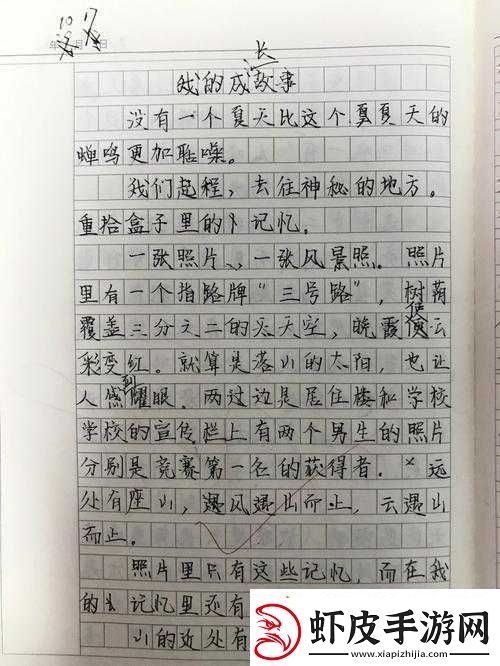 10 17
年 月 日
我的成长故事
没有一个夏天比这个夏天的
蝉鸣更加聒噪。
我们起程，去往神秘的地方。
重拾盒子里的记忆。
一张照片，一张风景照。照片
里有一个指路牌“三号路”，树荫
覆盖三分之二的天空，晚霞使云
彩变红。就算是落山的太阳，也让
人感到耀眼。两过边是居住楼和学校
学校的宣传栏上有两个男生的照片
分别是竞赛第一名的获得者。远
处有座山，遇风遇山而止，云遇山
而止。
照片里只有这些记忆，而在我
的记忆里还有
山的近处有
虾皮手游网
www.xiapizhijia.com